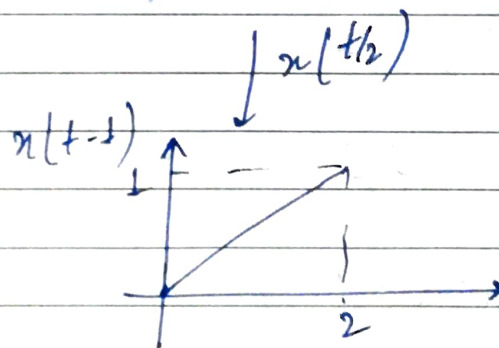 x(t/2)
x(t-1)
1
2